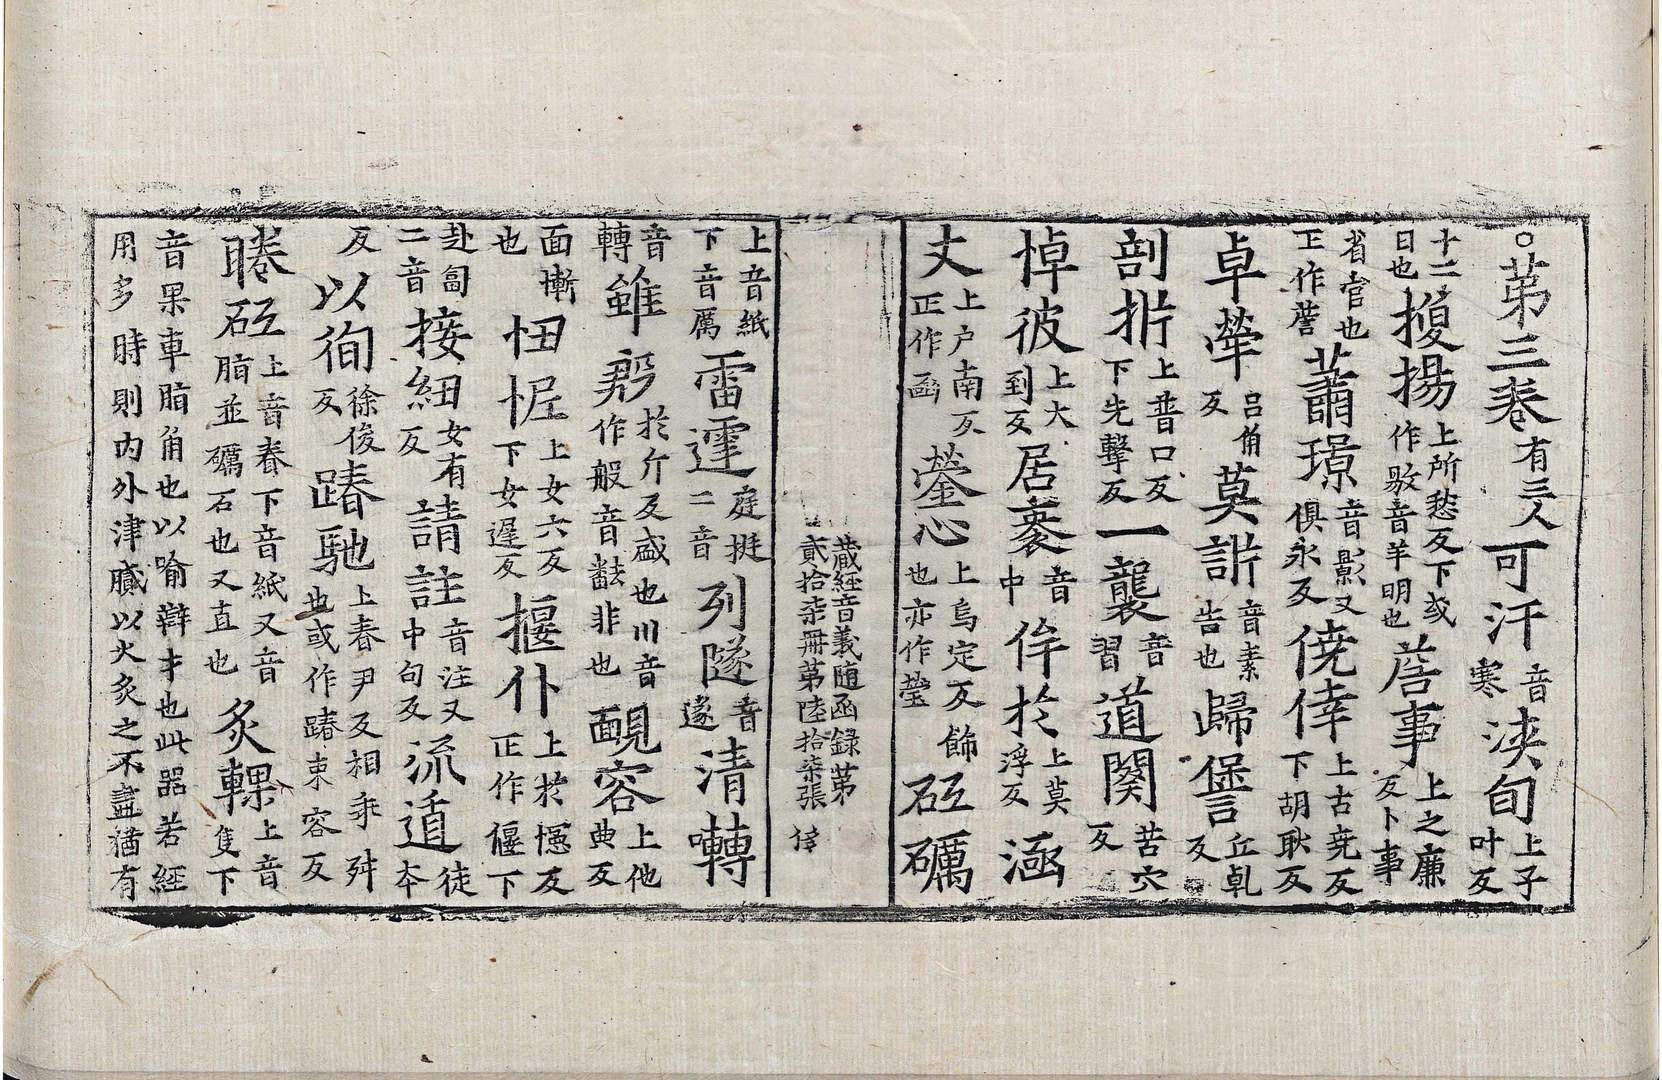 ○苐三卷有三人可汗音寒浹旬上子叶反
十二日也𢮟揚上所愁反下或作敭音羊明也𧨏事上之廉反卜事
省官也正作𧫡蕭璟音影又俱永反僥倖上古尭反下胡耿反
卓犖吕角反莫訴音素告也歸譽丘乹反
剖析上普口反下先擊反一襲音習道闋苦穴反
悼彼上大到反居衷音中侔於上莫浮反涵
丈上户南反正作函鎣心上烏定反飾也亦作瑩砥礪
藏經音義随函録第貳拾柒冊第陸拾柒張 侾
上音紙下音厲雷霆庭挺二音列隧音遂清囀
音轉雖郣於斤反盛也川音作般音盤非也靦容上他典反
面慚也忸怩上女六反下女遲反揠仆上於憶反正作偃下
赴匐二音接紐女有反請註音注又中句反流遁徒夲
反以徇徐俊反踳馳上春尹反相乖舛也或作踳束容反
睠砥上音眷下音紙又音脂並礪石也又直也炙輠上音隻下
音果車脂角也以喻辯才也此器若經
用多時則内外津膩以火炙之不盡猶有